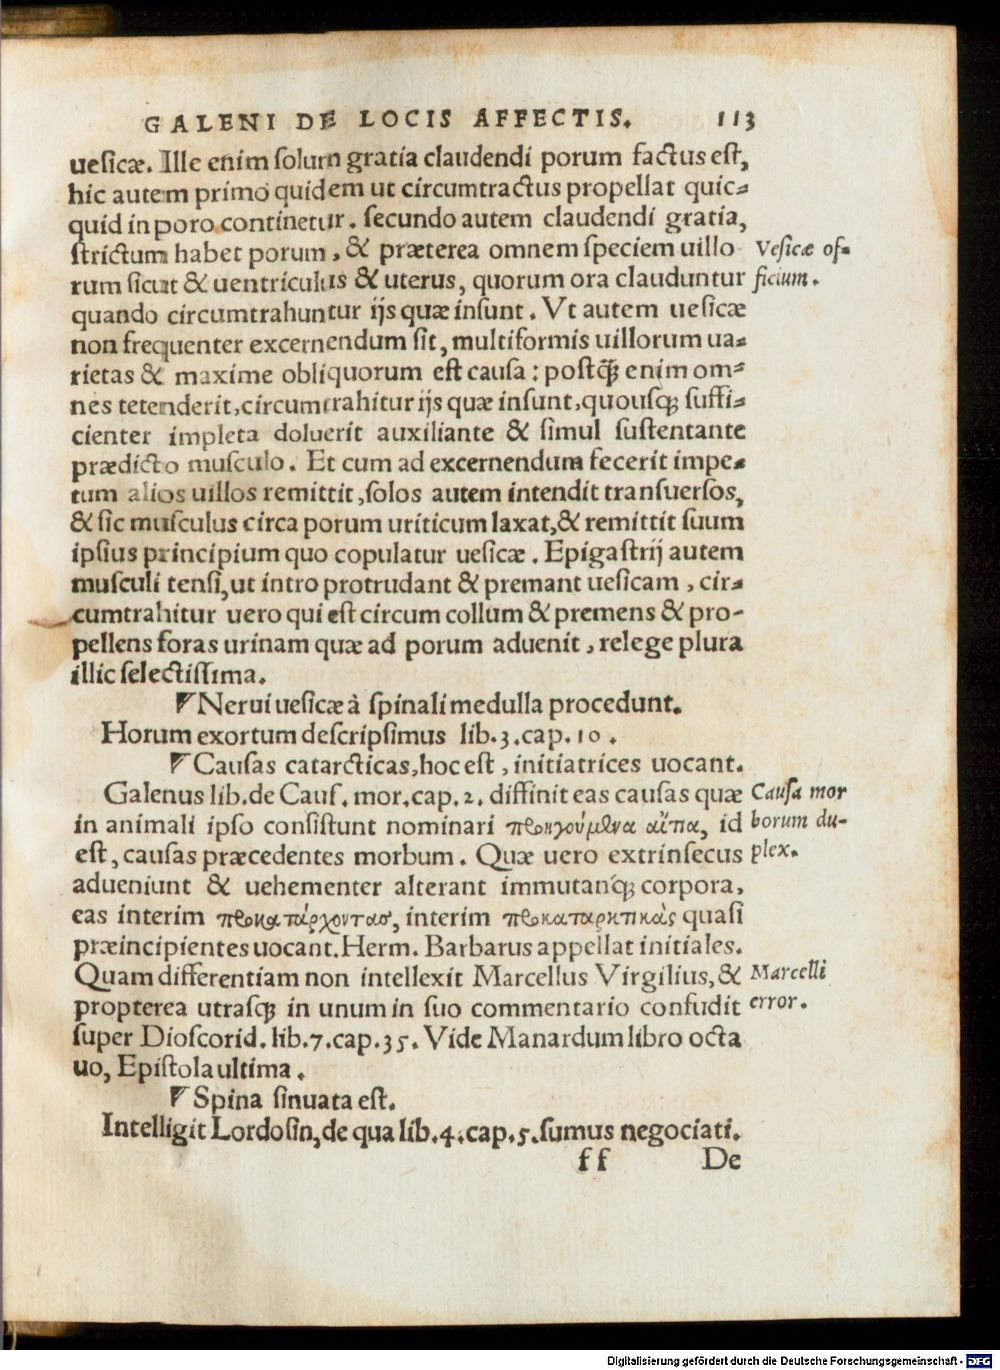 GALENI DE LOCIS AFFECTIS. 113
uesicæ. Ille enim solum gratia claudendi porum factus est,
hic autem primo quidem ut circumtractus propellat quic-
quid in poro continetur. secundo autem claudendi gratia,
strictum habet porum, & præterea omnem speciem uillo
rum sicut & uentriculus & uterus, quorum ora clauduntur
Vesicæ of-
ficium.
quando circumtrahuntur ijs quæ insunt. Vt autem uesicæ
non frequenter excernendum sit, multiformis uillorum ua-
rietas & maxime obliquorum est causa: postq̃ enim om-
nes tetenderit, circumtrahitur ijs quæ insunt, quousq; suffi-
cienter impleta doluerit auxiliante & simul sustentante
prædicto musculo. Et cum ad excernendum fecerit impe-
tum alios uillos remittit, solos autem intendit transuersos,
& sic musculus circa porum uriticum laxat, & remittit suum
ipsius principium quo copulatur uesicæ. Epigastrij autem
musculi tensi, ut intro protrudant & premant uesicam, cir-
cumtrahitur uero qui est circum collum & premens & pro-
pellens foras urinam quæ ad porum aduenit, relege plura
illic selectissima.
Nerui uesicæ à spinali medulla procedunt.
Horum exortum descripsimus lib. 3. cap. 10.
Causas catarcticas, hoc est, initiatrices uocant.
Galenus lib. de Caus. mor. cap. 2. diffinit eas causas quæ
in animali ipso consistunt nominari προηγούμενα αἴτια, id
est, causas præcedentes morbum. Quæ uero extrinsecus
Causa mor
borum du-
plex.
adueniunt & uehementer alterant immutantq́; corpora,
eas interim προκατάρχοντας, interim προκαταρκτικὰς quasi
præincipientes uocant. Herm. Barbarus appellat initiales.
Quam differentiam non intellexit Marcellus Virgilius, &
propterea utrasq; in unum in suo commentario confudit
Marcelli
error.
super Dioscorid. lib. 7. cap. 35. Vide Manardum libro octa
uo, Epistola ultima.
Spina sinuata est.
Intelligit Lordosin, de qua lib. 4. cap. 5. sumus negociati.
ff De
Digitalisierung gefördert durch die Deutsche Forschungsgemeinschaft - DFG